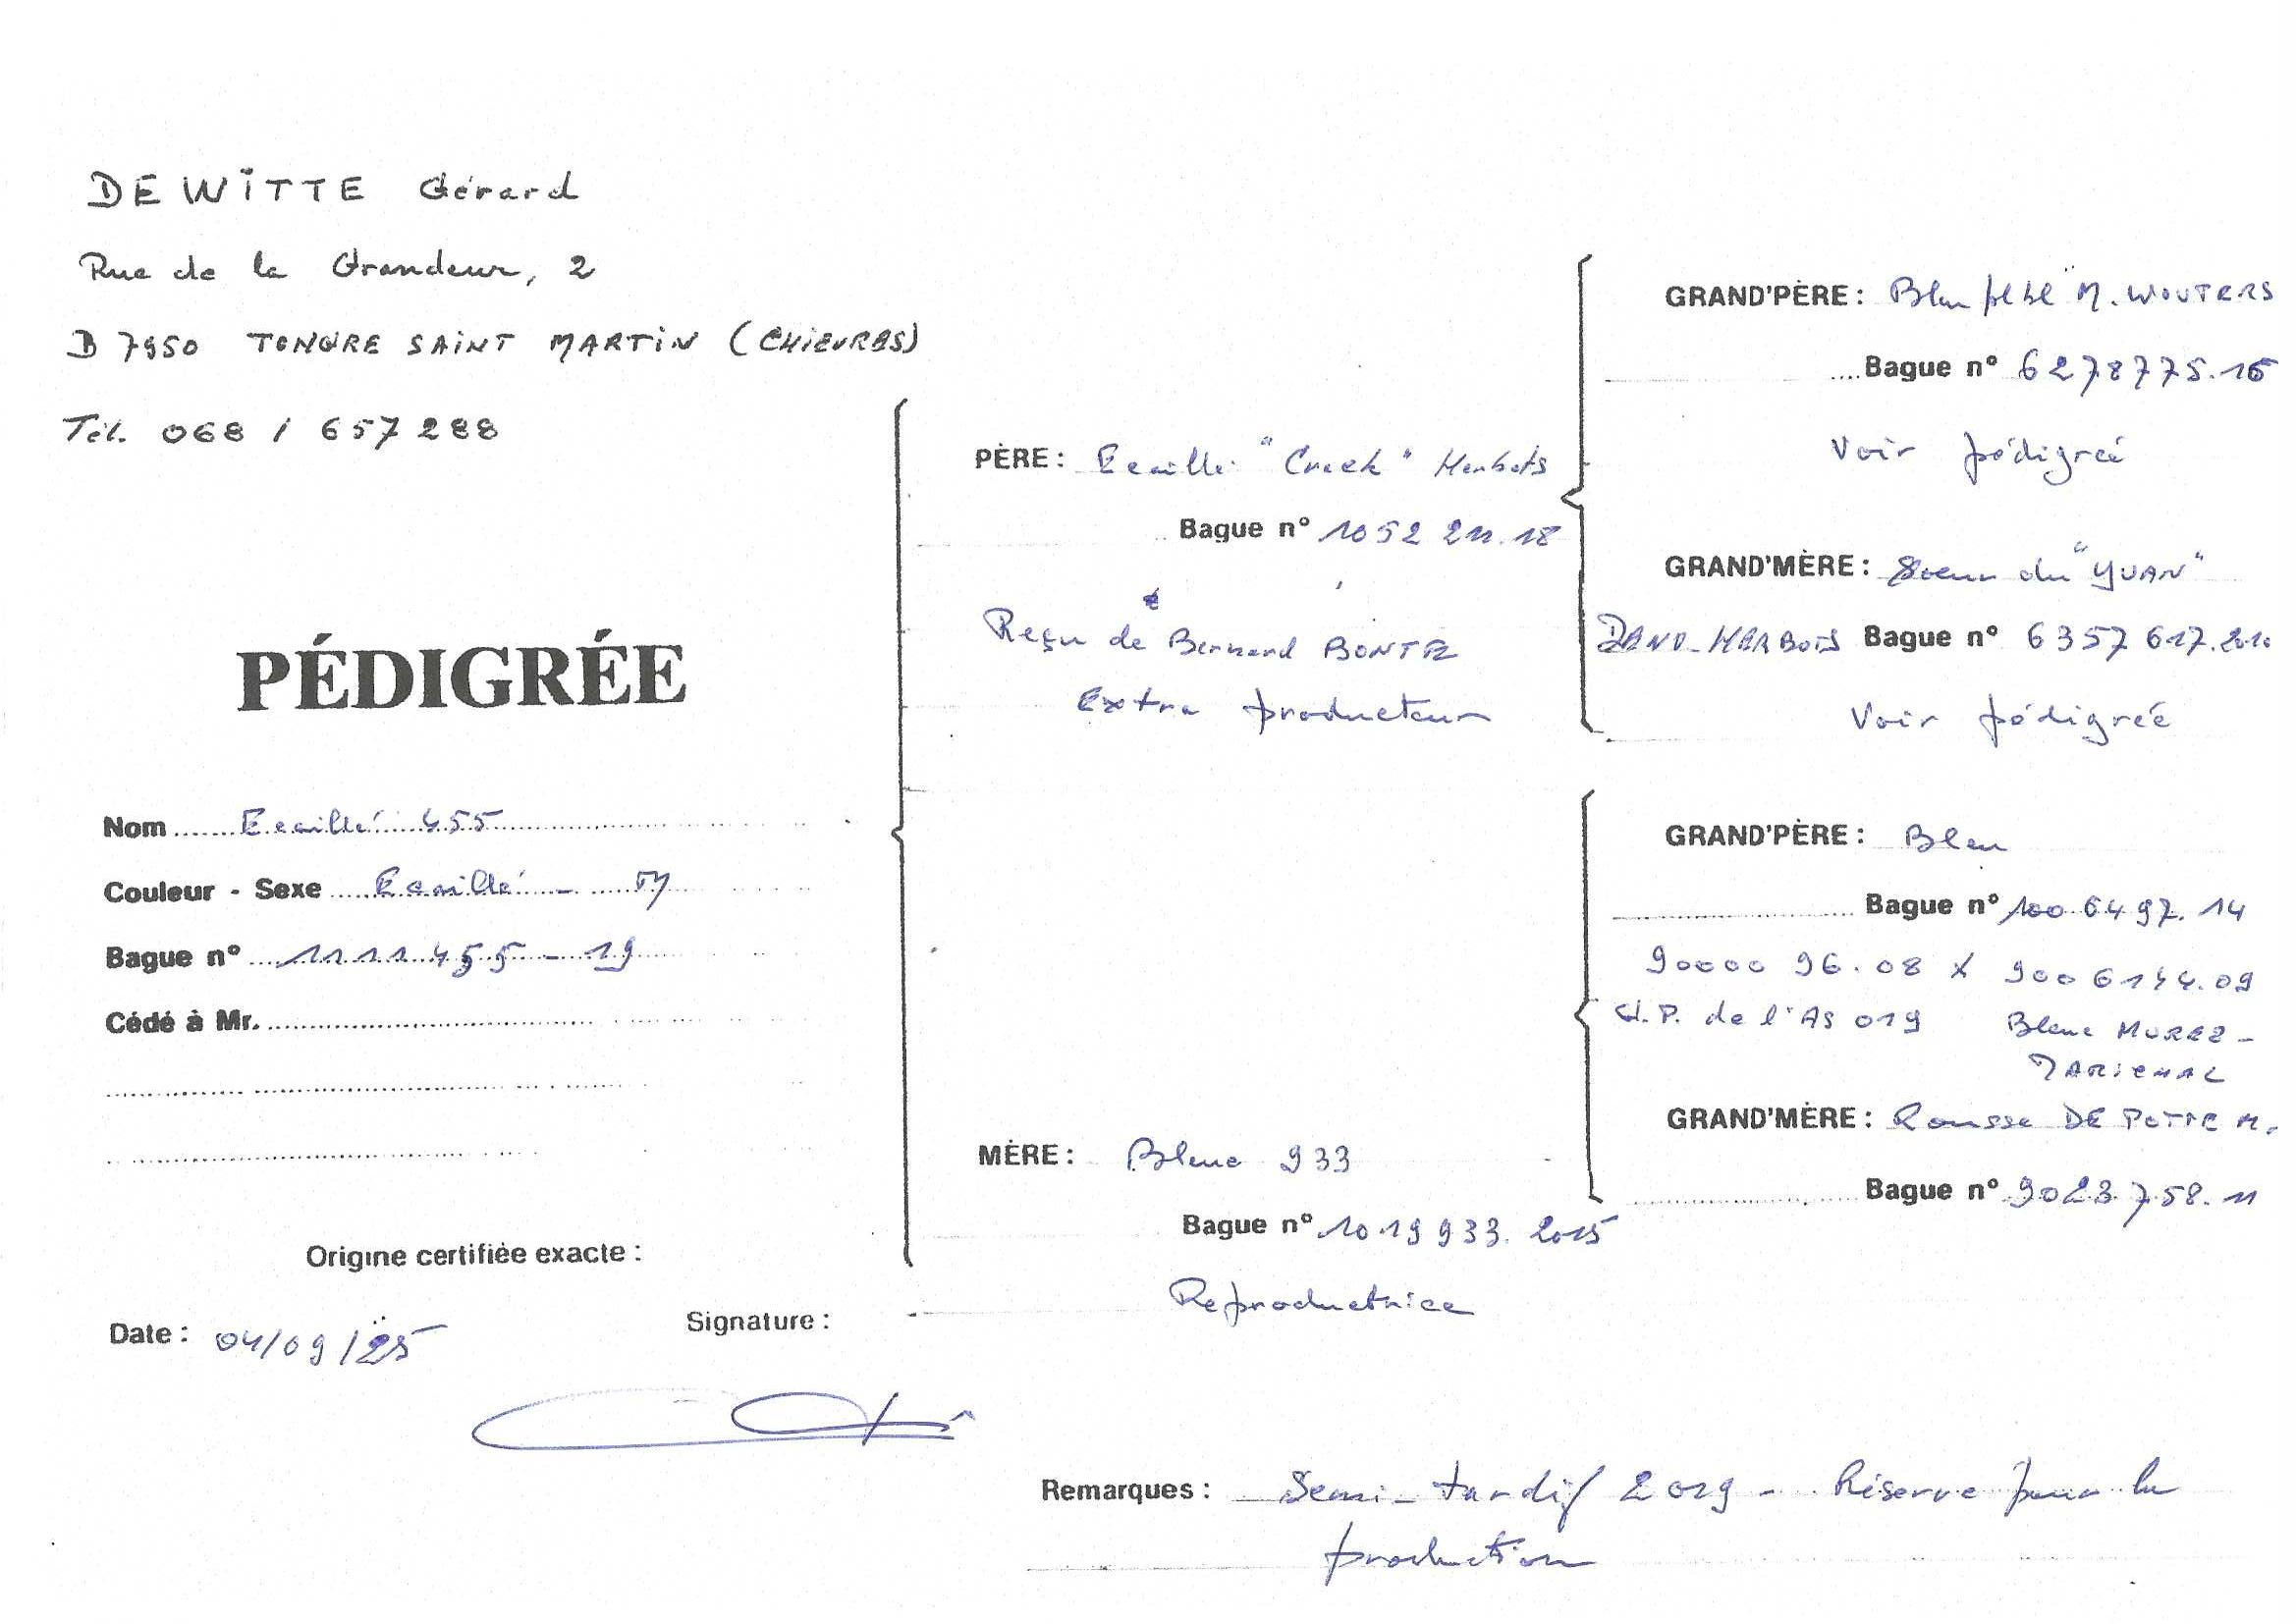 DEWITTE Gérard
Rue de la Grandeur, 2
B 7950 TONGRE SAINT MARTIN (CHIEVRES)
Tél. 068 / 657 288
PÉDIGRÉE
Nom Ecaillé 455
Couleur - Sexe Ecaillé - M
Bague n° 1111 455 - 19
Cédé à Mr.
Origine certifiée exacte :
Date : 04/09/25
Signature :
PÈRE : Ecaillé "Crack" Herbots
Bague n° 1052 211.18
Reçu de Bernard BONTE
Extra producteur
MÈRE : Bleue 933
Bague n° 1019 933. 2015
Reproductrice
GRAND'PÈRE : Bleu M. WOUTERS
Bague n° 6278775.16
Voir pédigrée
GRAND'MÈRE : Soeur du "YUAN"
HERBOTS Bague n° 6357617.2010
Voir pédigrée
GRAND'PÈRE : Bleu
Bague n° 100 6497. 14
90000 96.08 x 900 6144.09
G.P. de l'As 019 Bleue MUREZ -
MARICHAL
GRAND'MÈRE : Rousse DE POTTE M.
Bague n° 9023758. 11
Remarques : Semi-tardif 2019 - Réserve pour la
production